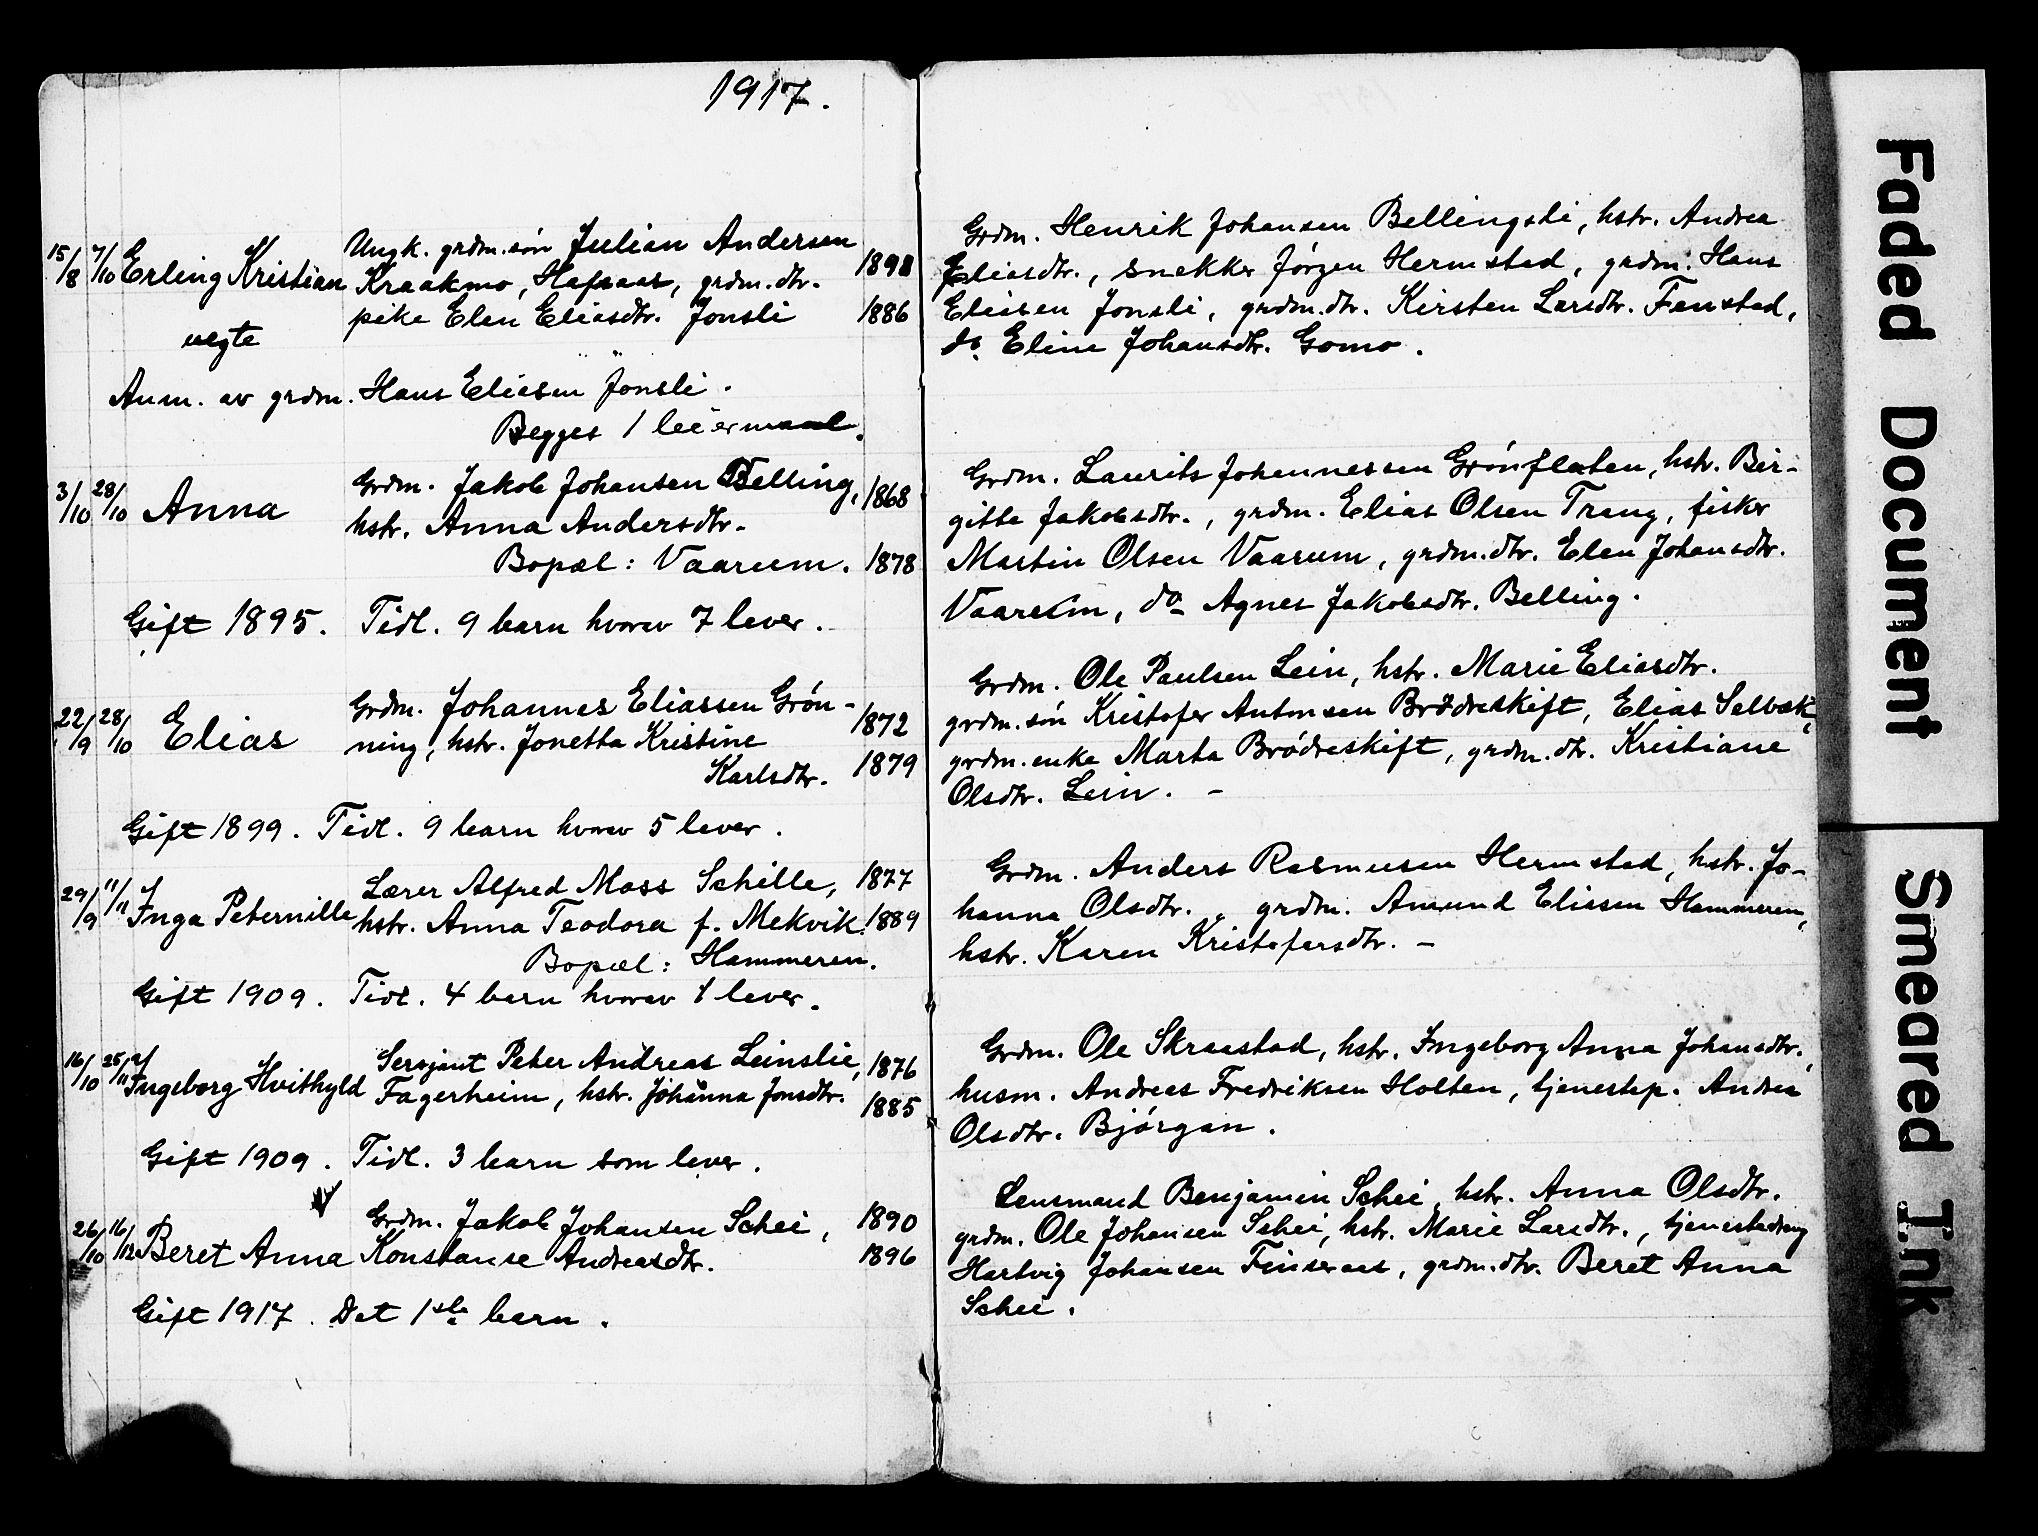 1917.
15/8 7/10 Erling Kristian
uegte
Ungk. grdm.søn Julian Andersen
Kraakmo, Hafsaas, grdm.dtr.
pike Elen Eliasdtr. Jønsli
1891
1886
Anm. av grdm. Hans Eliesen Jønsli.
Begges 1 leiermaal.
Grdm. Henrik Johansen Bellingsli, hstr. Andrea
Eliasdtr., snekker Jørgen Hermstad, grdm. Hans
Eliesen Jønsli, grdm.dtr. Kirsten Larsdtr. Fenstad,
do. Eline Johansdtr. Gomo.
3/10 28/10 Anna
Grdm. Jakob Johansen Belling,
hstr. Anna Andersdtr.
Bopæl: Vaarum.
1868
1878
Gift 1895. Tidl. 9 barn hvorav 7 lever.
Grdm. Laurits Johannessen Grønfleten, hstr. Bir-
gitte Jakobsdtr., grdm. Elias Olsen Trang, fisker
Martin Olsen Vaarum, grdm.dtr. Elen Johansdtr.
Vaarum, do Agnes Jakobsdtr. Belling.
22/9 28/10 Elias
Grdm. Johannes Eliassen Grøn-
ning, hstr. Jonetta Kristine
Karlsdtr.
1872
1879
Gift 1899. Tidl. 9 barn hvorav 5 lever.
Grdm. Ole Paulsen Lein, hstr. Marie Eliasdtr.
grdm.søn Kristofer Antonsen Brødreskift, Elias Selbæk,
grdm.enke Marta Brødreskift, grdm.dtr. Kristiane
Olsdtr. Lein. -
29/9 11/11 Inga Peternille
Lærer Alfred Moss Schille,
hstr. Anna Teodora f. Mekvik.
Bopæl: Hammeren.
1877
1889
Gift 1909. Tidl. 4 barn hvorav 1 lever.
Grdm. Anders Rasmusen Hermstad, hstr. Jo-
hanna Olsdtr., grdm. Amund Elissen Hammeren,
hstr. Karen Kristofersdtr. -
16/10 25/11 Ingeborg Hvithyld
Sersjant Peter Andreas Leinslie,
Fagerheim, hstr. Johanna Jonsdtr.
1876
1885
Gift 1909. Tidl. 3 barn som lever.
Grdm. Ole Skraastad, hstr. Ingeborg Anna Johansdtr.,
husm. Andreas Fredriksen Holten, tjenestep. Andrea
Olsdtr. Bjørgan.
26/10 16/12 Beret Anna
Grdm. Jakob Johansen Schei,
Konstanse Andreasdtr.
1890
1896
Gift 1917. Det 1ste barn.
Lensmand Benjamin Schei, hstr. Anna Olsdtr.
grdm. Ole Johansen Schei, hstr. Marie Larsdtr., tjenestedreng
Hartvig Johansen Finseraas, grdm.dtr. Beret Anna
Schei.
Faded Document
Smeared Ink